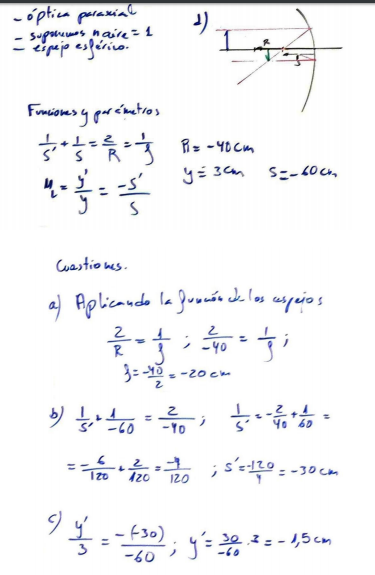 - óptica paraxial
- suponemos n aire = 1
- espejo esférico.
d)
R
f
Funciones y parámetros
1/s' + 1/s = 2/R = 1/f
R = -40cm
M_L = y'/y = -s'/s
y = 3cm s = -60cm
Cuestiones.
a) Aplicando la función de los espejos
2/R = 1/f ; 2/-40 = 1/f ;
f = -40/2 = -20 cm
b) 1/s' + 1/-60 = 2/-40 ; 1/s' = -2/40 + 1/60 =
= -6/120 + 2/120 = -4/120 ; s' = -120/4 = -30cm
c) y'/3 = -(-30)/-60 ; y' = 30/-60 · 3 = -1,5cm